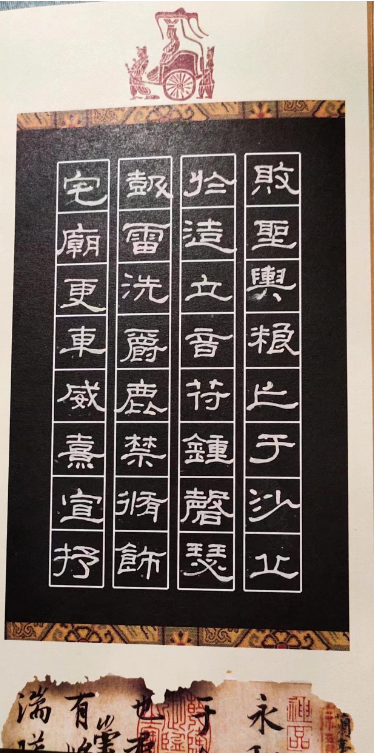 敗聖輿粮亡于沙丘
於造立音符鍾磬瑟
鼓雷洗爵鹿禁脩飾
宅廟更車威熹宣抒
永
于
也
有
湍